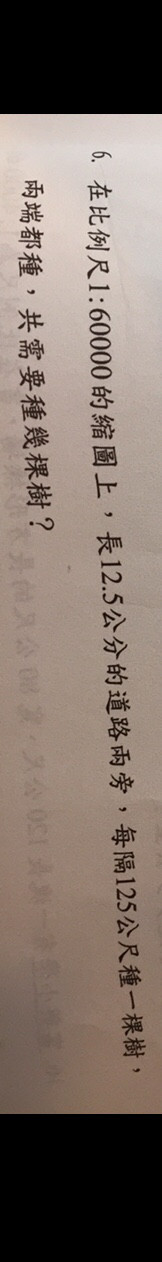 6. 在比例尺1:60000的縮圖上，長12.5公分的道路兩旁，每隔125公尺種一棵樹，
兩端都種，共需要種幾棵樹？